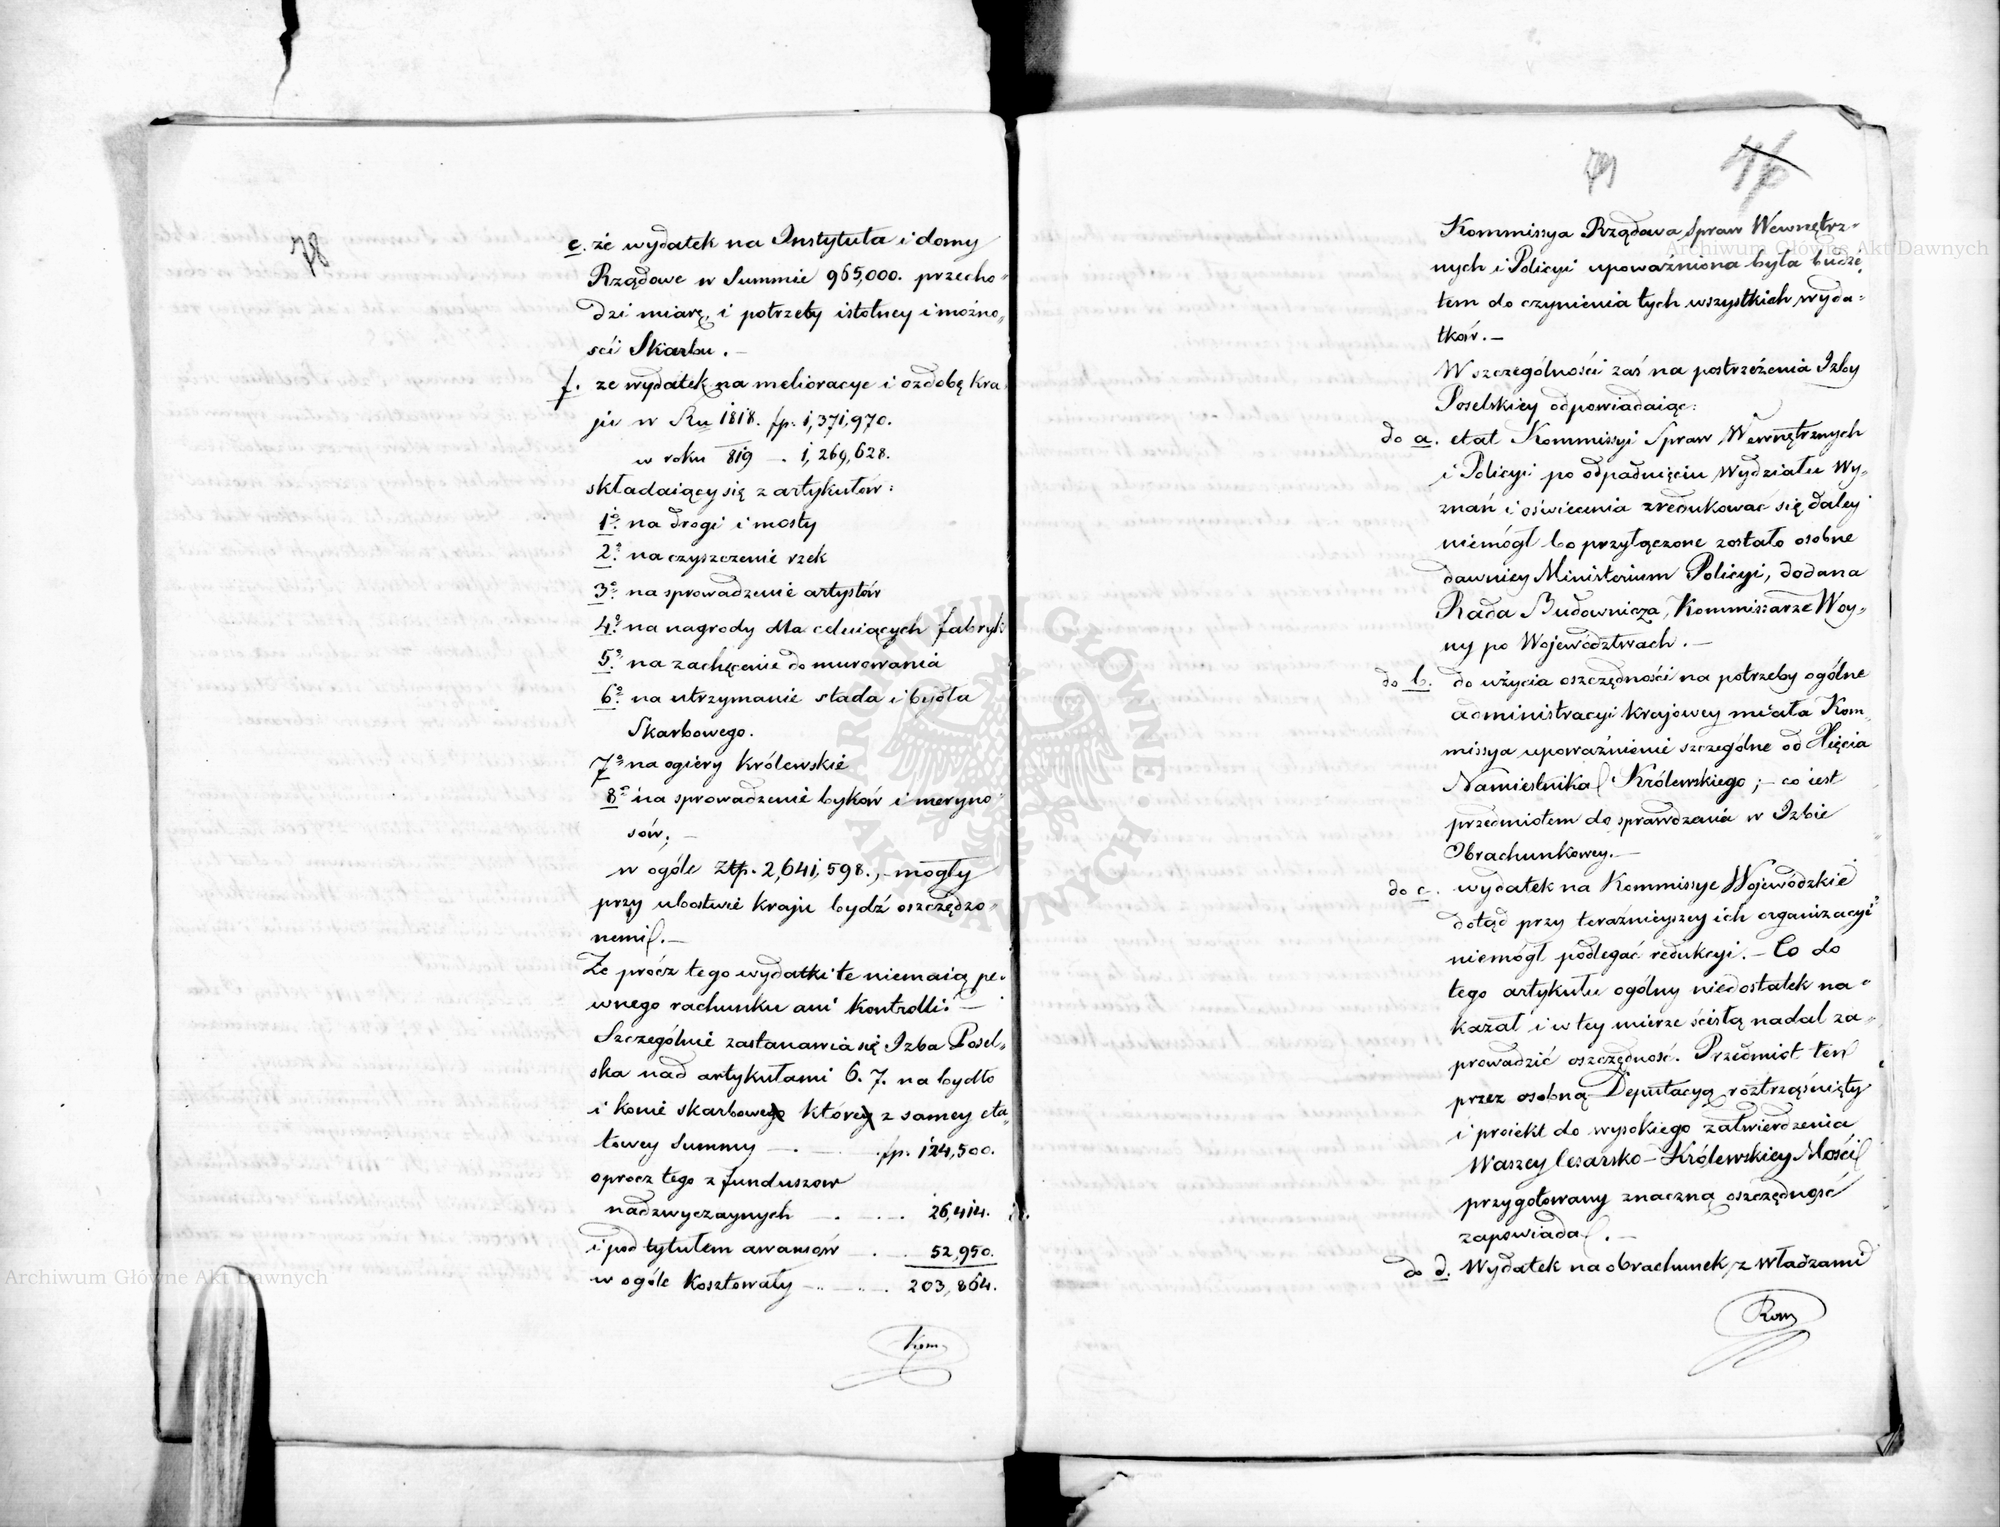 78
e. że wydatek na Instytuta i domy
Rządowe w Summie 965,000. przecho=
dzi miarę, i potrzeby istotney i możno=
ści Skarbu. —
f. ze wydatek na melioracye i ozdobę kra
ju w Ru 1818. fp. 1,371,970.
w roku 819 — . 1,269,628.
składaiący się z artykułów:
1º na drogi i mosty
2º na czyszczenie rzek
3º na sprowadzenie artystów
4º na nagrody dla celuiących fabryk
5º na zachęcenie do murowania
6º na utrzymanie stada i bydła
Skarbowego.
7º na ogiery Królewskie
8º na sprowadzenie byków i meryno
sów; —
w ogóle złp. 2,641,598., mogły
przy ubóstwie kraju bydź oszczędzo=
nemi. —
Że prócz tego wydatki te niemaią pe=
wnego rachunku ani Kontrolli. —
Szczególnie zastanawia się Izba Posel=
ska nad artykułami 6. 7. na bydło
i konie skarbowe które z samey eta=
towey Summy — . — . fp. 124,500.
oprocz tego z funduszow
nadzwyczaynych — . — . — 26,414.
i pod tytułem awansów — . — 52,950.
w ogóle Kosztowały — .. — .. — 203,864.
79
76
Kommissya Rządowa Spraw Wewnętrz=
nych i Policyi upoważniona była budże
tem do czynienia tych wszystkich wyda=
tków. —
W szczególności zaś na postrzeżenia Izby
Poselskiey odpowiadaiąc:
do a. etat Kommissyi Spraw Wewnętrznych
i Policyi po odpadnięciu Wydziału Wy=
znań i oświecenia zredukować się daley
niemógł bo przyłączone zostało osobne
dawniey Ministerium Policyi, dodana
Rada Budownicza, Kommissarze Woy=
ny po Województwach. —
do b. do użycia oszczędności na potrzeby ogólne
administracyi krajowey miała Kom
missya upoważnienie szczególne od Xięcia
Namiestnika Królewskiego; — co iest
przedmiotem do sprawdzenia w Izbie
Obrachunkowey. —
do c. wydatek na Kommissye Wojewódzkie
dotąd przy teraźnieyszey ich organizacyi
niemógł podlegać redukcyi. — Co do
tego artykułu ogólny niedostatek na=
kazał i w tey mierze ścisłą nadal za=
prowadzić oszczędność. Przedmiot ten
przez osobną Deputacyą roztrząśnięty
i projekt do wysokiego zatwierdzenia
Waszey Cesarsko-Królewskiey Mości
przygotowany znaczną oszczędność
zapowiada. —
do d. Wydatek na obrachunek z Władzami
Archiwum Główne Akt Dawnych
Archiwum Główne Akt Dawnych
ARCHIWUM GŁÓWNE AKT DAWNYCH